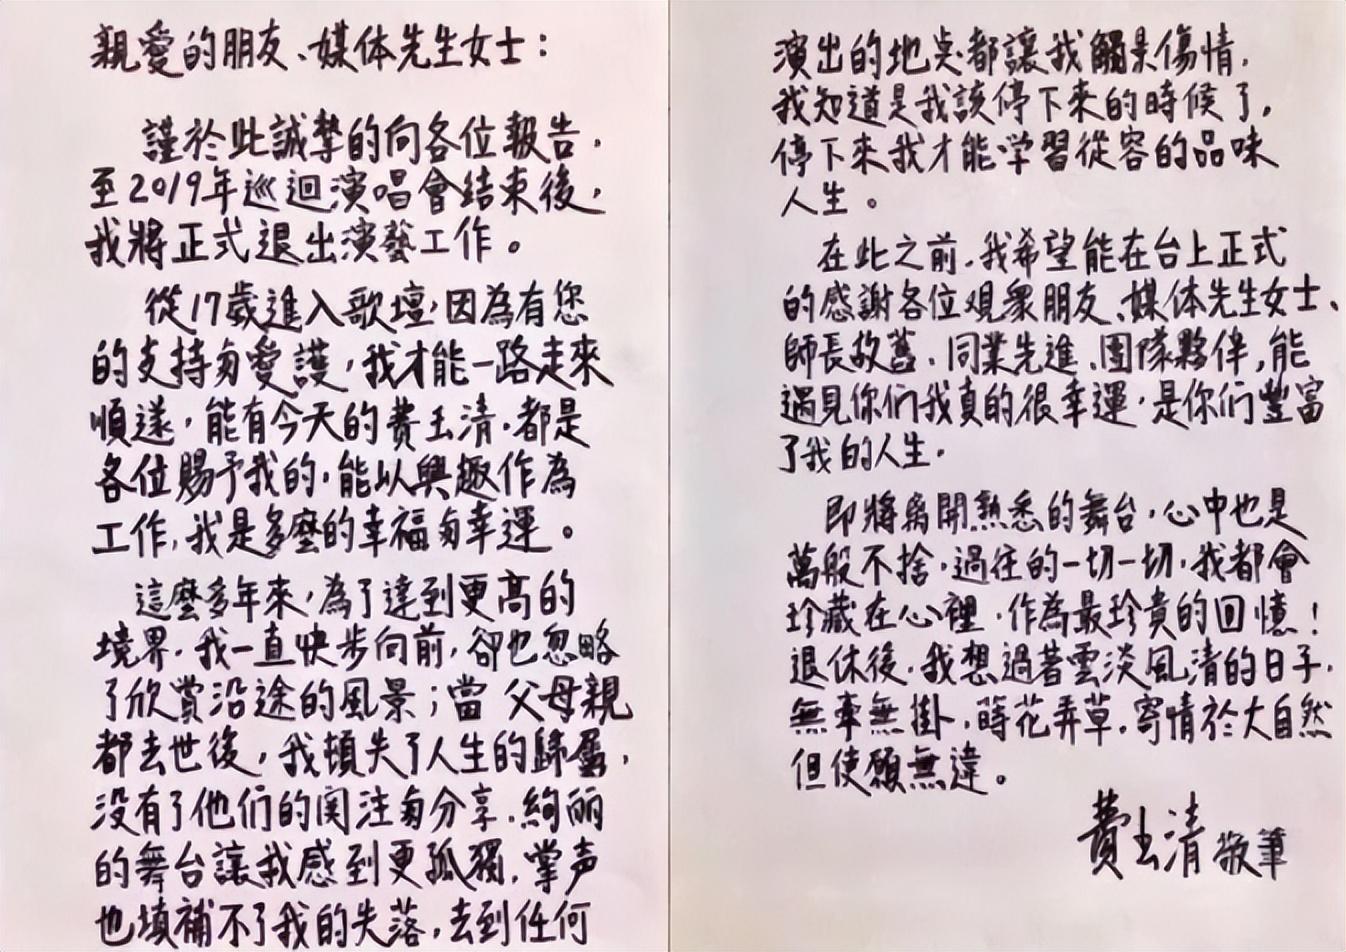 親愛的朋友、媒体先生女士：
謹於此誠摯的向各位報告，
至2019年巡迴演唱會结束後，
我將正式退出演藝工作。
從17歲進入歌壇，因為有您
的支持与愛護，我才能一路走來
順遂，能有今天的費玉清，都是
各位賜予我的，能以興趣作為
工作，我是多麼的幸福与幸運。
這麼多年來，為了達到更高的
境界，我一直快步向前，卻也忽略
了欣賞沿途的風景；當父母親
都去世後，我頓失了人生的歸屬，
没有了他们的関注与分享，絢丽
的舞台讓我感到更孤獨，掌声
也填補不了我的失落，去到任何
演出的地点都讓我觸景傷情，
我知道是我該停下來的時候了，
停下來我才能学習從容的品味
人生。
在此之前，我希望能在台上正式
的感謝各位观衆朋友、媒体先生女士、
師長故舊、同業先進、團隊夥伴，能
遇見你们我真的很幸運，是你们豐富
了我的人生，
即將离開熟悉的舞台，心中也是
萬般不捨，過往的一切一切，我都會
珍藏在心裡，作為最珍貴的回憶！
退休後，我想過著雲淡風清的日子，
無牽無掛，蒔花弄草，寄情於大自然
但使願無違。
費玉清 敬筆